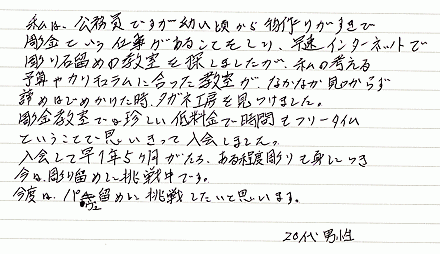 私は、公務員ですが幼い頃から物作りがすきで
彫金という仕事があることをしり、早速インターネットで
彫り石留めの教室を探しましたが、私の考える
予算やカリキュラムに合った教室が、なかなか見つからず
諦めはじめかけた時、タガネ工房を見つけました。
彫金教室では珍しい低料金で時間もフリータイム
ということで思いきって入会しました。
入会して早1年5ヶ月がたち、ある程度彫りも身につき
今は、彫り留めに挑戦中です。
今度は、パヴェ留めに挑戦したいと思います。
20代 男性